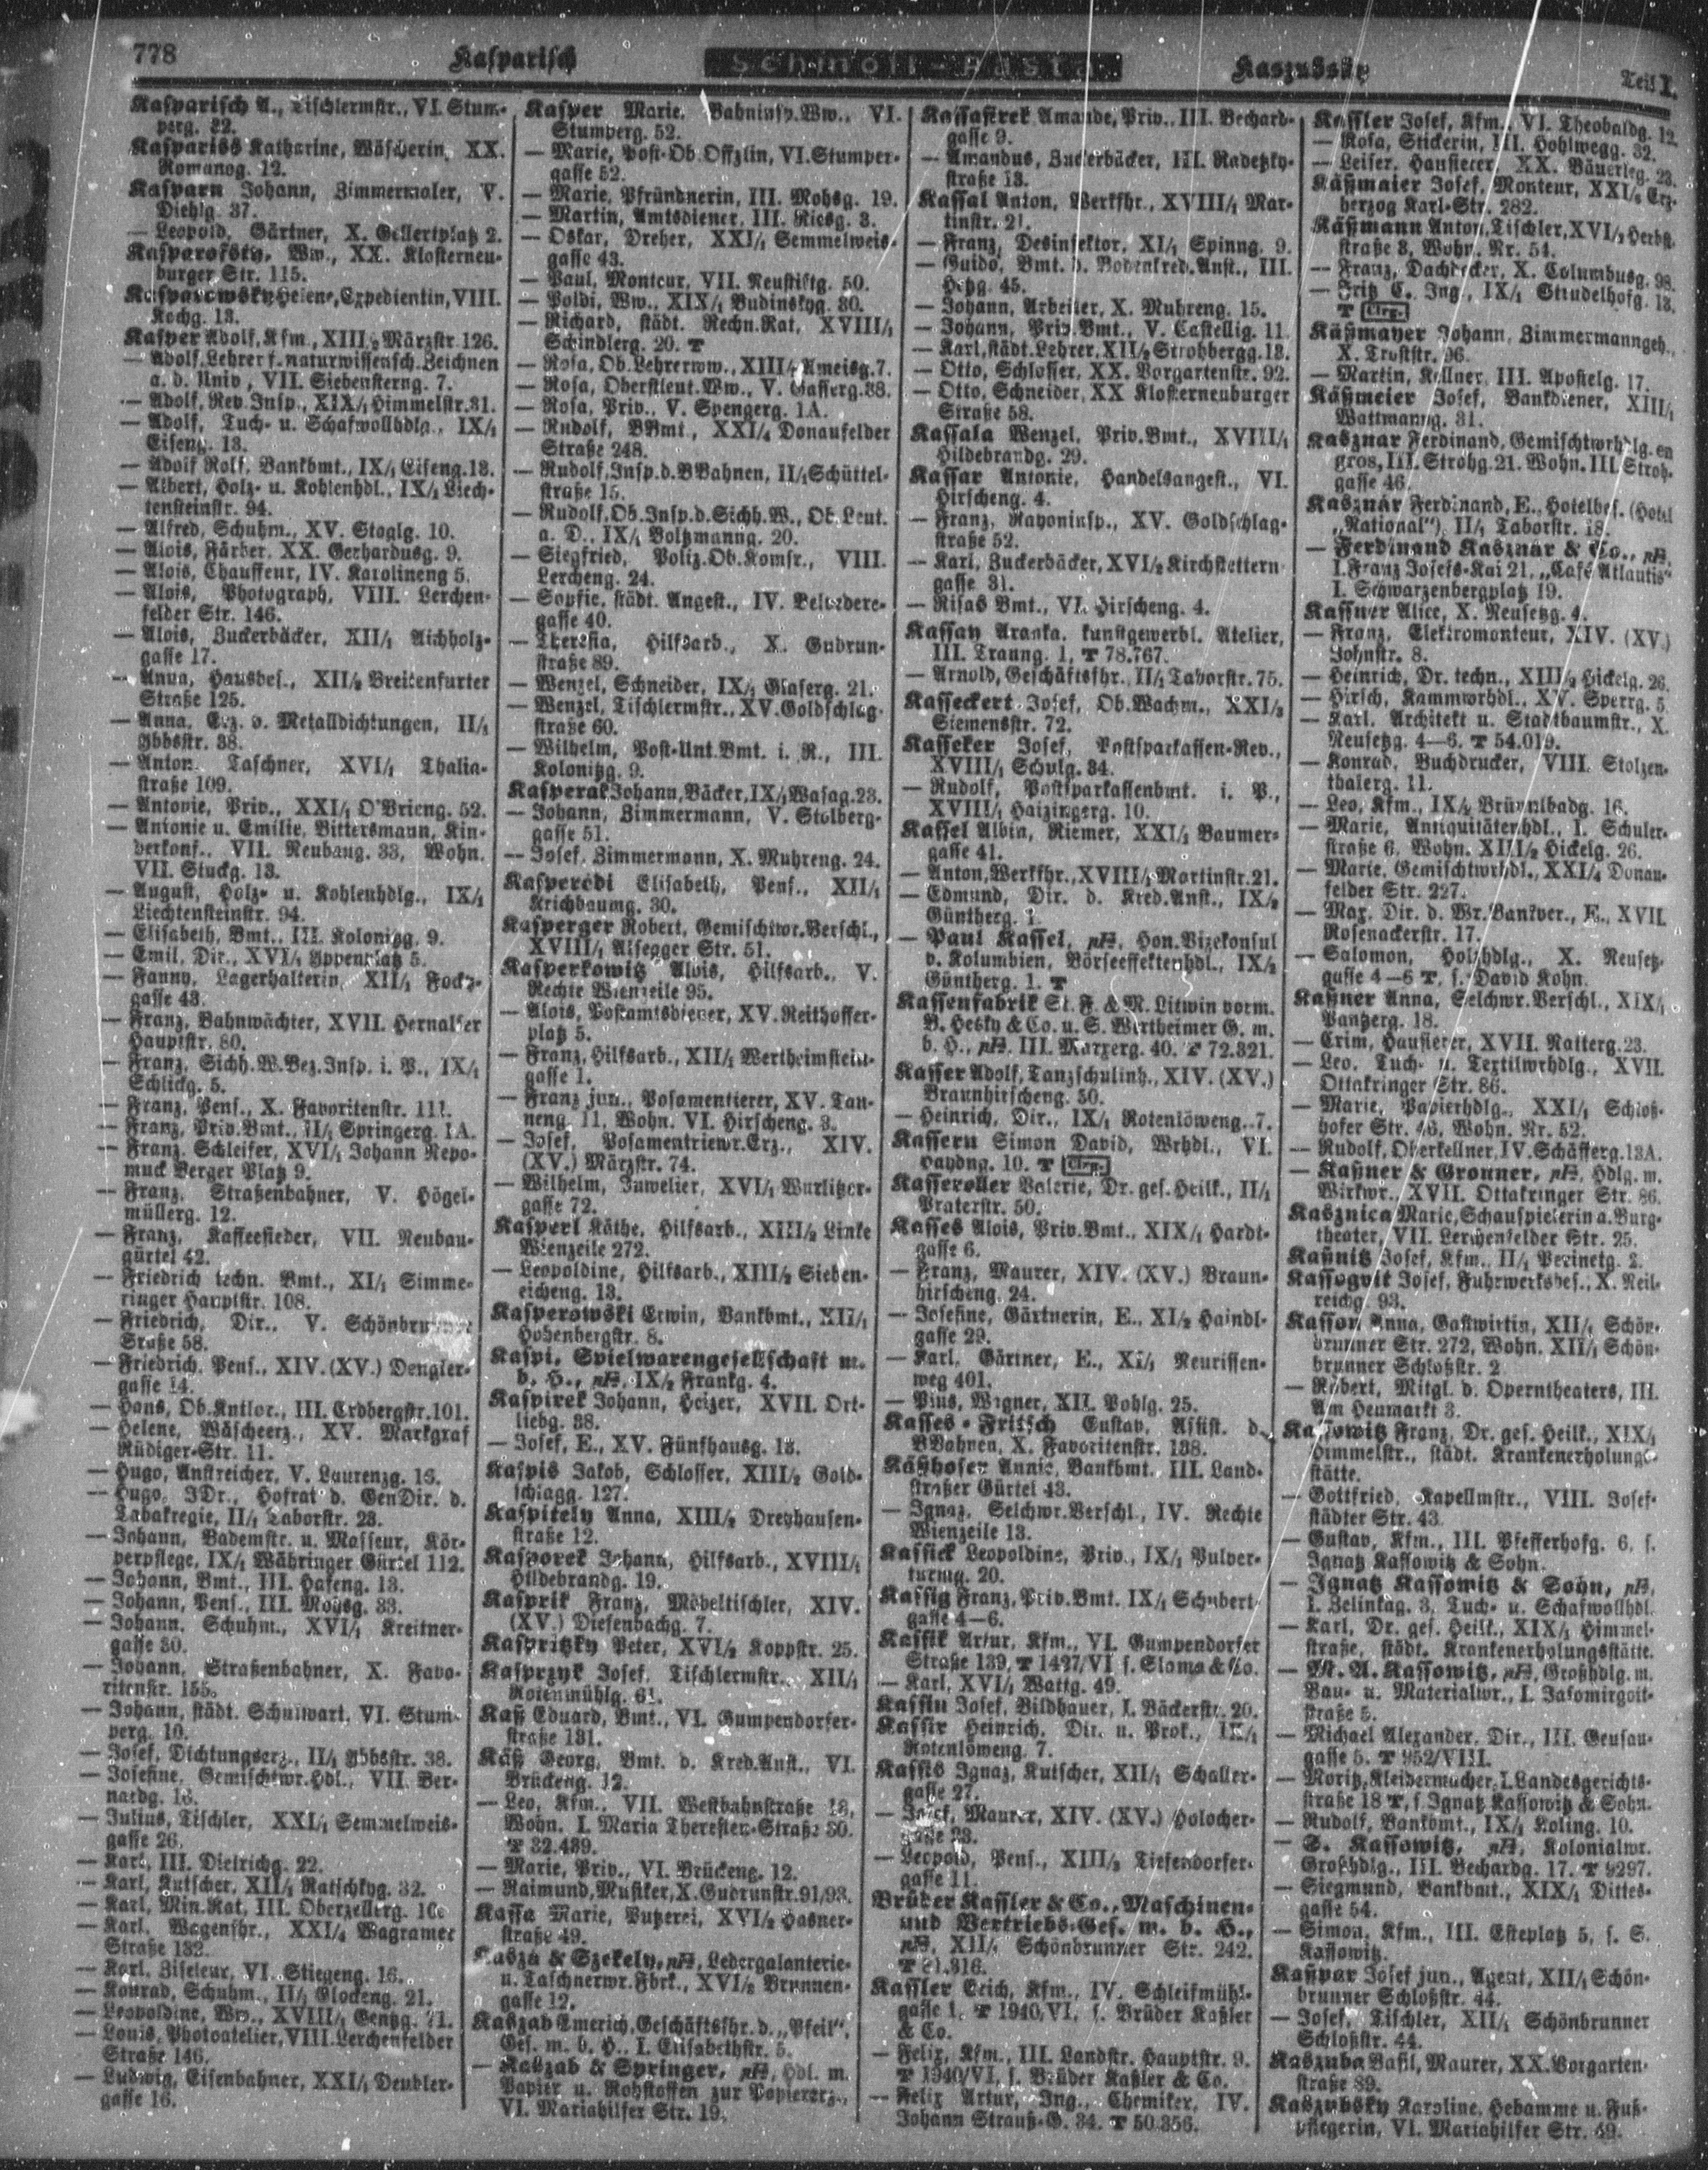 778 Kasparisch Schmoll-Pasta Kaszubsky Teil I.
Kasparisch A., Tischlermstr., VI. Stum-
perg. 22.
Kaspariss Katharine, Wäscherin, XX.
Romanog. 12.
Kasparn Johann, Zimmermaler, V.
Diehlg. 37.
— Leopold, Gärtner, X. Gellertplatz 2.
Kasparofsky, Ww., XX. Klosterneu-
burger Str. 115.
Kasparowsky Helene, Expedientin, VIII.
Kochg. 13.
Kasper Adolf, Kfm., XIII/2 Märzstr. 126.
— Adolf, Lehrer f. naturwissensch. Zeichnen
a. d. Univ., VII. Siebensterng. 7.
— Adolf, Rev. Insp., XIX/1 Himmelstr. 31.
— Adolf, Tuch- u. Schafwollhdlg., IX/1
Eiseng. 13.
— Adolf Rolf, Bankbmt., IX/1 Eiseng. 13.
— Albert, Holz- u. Kohlenhdl., IX/1 Liech-
tensteinstr. 94.
— Alfred, Schuhm., XV. Stoglg. 10.
— Alois, Färber, XX. Gerhardusg. 9.
— Alois, Chauffeur, IV. Karolineng 5.
— Alois, Photograph, VIII. Lerchen-
felder Str. 146.
— Alois, Zuckerbäcker, XII/1 Aichholz-
gasse 17.
— Anna, Hausbes., XII/2 Breitenfurter
Straße 125.
— Anna, Erz. v. Metalldichtungen, II/1
Ybbsstr. 38.
— Anton Taschner, XVI/1 Thalia-
straße 109.
— Antonie, Priv., XXI/1 O'Brieng. 52.
— Antonie u. Emilie, Bittersmann, Kin-
derkonf., VII. Neubaug. 33, Wohn.
VII. Stuckg. 13.
— August, Holz- u. Kohlenhdlg., IX/1
Liechtensteinstr. 94.
— Elisabeth, Bmt., III. Kolonitzg. 9.
— Emil, Dir., XVI/1 Yppenplatz 5.
— Fanny, Lagerhalterin, XII/1 Focky-
gasse 43.
— Franz, Bahnwächter, XVII. Hernalser
Hauptstr. 80.
— Franz, Sichh.W.Bez.Insp. i. P., IX/1
Schlickg. 5.
— Franz, Pens., X. Favoritenstr. 111.
— Franz, Priv.Bmt., II/1 Springerg. 1A.
— Franz, Schleifer, XVI/1 Johann Nepo-
muck Berger Platz 9.
— Franz, Straßenbahner, V. Högel-
müllerg. 12.
— Franz, Kaffeesieder, VII. Neubau-
gürtel 42.
— Friedrich techn. Bmt., XI/1 Simme-
ringer Hauptstr. 108.
— Friedrich, Dir., V.
Sraße 58.
— Friedrich, Pens., XIV. (XV.) Dengler-
gasse 14.
— Hans, Ob.Kntlor., III. Erdbergstr. 101.
— Helene, Wäscheerz., XV. Markgraf
Rüdiger-Str. 11.
— Hugo, Anstreicher, V. Laurenzg. 16.
— Hugo, JDr., Hofrat d. GenDir. d.
Tabakregie, II/1 Taborstr. 23.
— Johann, Bademstr. u. Masseur, Kör-
perpflege, IX/1 Währinger Gürtel 112.
— Johann, Bmt., III. Hafeng. 13.
— Johann, Pens., III. Mohsg. 33.
— Johann, Schuhm., XVI/1 Kreitner-
gasse 30.
— Johann, Straßenbahner, X. Favo-
ritenstr. 155.
— Johann, städt. Schulwart, VI. Stum-
perg. 10.
— Josef, Dichtungserz., II/1 Ybbsstr. 38.
— Josefine, Gemischtwr.Hdl., VII. Ber-
nardg. 13.
— Julius, Tischler, XXI/1 Semmelweis-
gasse 26.
— Karl, III. Dietrichg. 22.
— Karl, Kutscher, XII/1 Ratschkyg. 32.
— Karl, Min.Rat, III. Oberzellerg.
— Karl, Wagenfhr., XXI/4 Wagramer
Straße 132.
— Karl, Ziseleur, VI. Stiegeng. 16.
— Konrad, Schuhm., II/1 Glockeng. 21.
— Leopoldine, Ww., XVIII/1 Gentzg.
— Louis, Photoatelier, VIII. Lerchenfelder
Straße 146.
— Ludwig, Eisenbahner, XXI/1 Deubler-
gasse 16.
Kasper Marie, Bahninsp.Ww., VI.
Stumperg. 52.
— Marie, Post-Ob.Offzlin, VI. Stumper-
gasse 52.
— Marie, Pfründnerin, III. Mohsg. 19.
— Martin, Amtsdiener, III. Riesg. 3.
— Oskar, Dreher, XXI/1 Semmelweis-
gasse 43.
— Paul, Monteur, VII. Neustiftg. 50.
— Poldi, Ww., XIX/1 Budinskyg. 30.
— Richard, städt. Rechn.Rat, XVIII/1
Schindlerg. 20. T
— Rosa, Ob. Lehrerww., XIII/4 Ameisg. 7.
— Rosa, Oberstleut.Ww., V. Gasserg. 38.
— Rosa, Priv., V. Spengerg. 1A.
— Rudolf, BBmt., XXI/4 Donaufelder
Straße 248.
— Rudolf, Insp.d.BBahnen, II/1 Schüttel-
straße 15.
— Rudolf, Ob.Insp.d.Sichh.W., Ob.Leut.
a. D., IX/1 Boltzmanng. 20.
— Siegfried, Poliz.Ob.Komsr., VIII.
Lercheng. 24.
— Sophie, städt. Angest., IV. Belvedere-
gasse 40.
— Theresia, Hilfsarb., X. Gudrun-
straße 89.
— Wenzel, Schneider, IX/1 Glaserg. 21.
— Wenzel, Tischlermstr., XV. Goldschlag-
straße 60.
— Wilhelm, Post-Unt.Bmt. i. R., III.
Kolonitzg. 9.
Kasperak Johann, Bäcker, IX/1 Wasag. 23.
— Johann, Zimmermann, V. Stolberg-
gasse 51.
— Josef, Zimmermann, X. Muhreng. 24.
Kasperedi Elisabeth, Pens., XII/1
Krichbaumg. 30.
Kasperger Robert, Gemischtwr.Verschl.,
XVIII/1 Alsegger Str. 51.
Kasperkowitz Alois, Hilfsarb., V.
Rechte Wienzeile 95.
— Alois, Postamtsdiener, XV. Reithoffer-
platz 5.
— Franz, Hilfsarb., XII/1 Wertheimstein-
gasse 1.
— Franz jun., Posamentierer, XV. Tan-
neng. 11, Wohn. VI. Hirscheng. 3.
— Josef, Posamentrierwr.Erz., XIV.
(XV.) Märzstr. 74.
— Wilhelm, Juwelier, XVI/1 Wurlitzer-
gasse 72.
Kasperl Käthe, Hilfsarb., XIII/2 Linke
Wienzeile 272.
— Leopoldine, Hilfsarb., XIII/2 Sieben-
eicheng. 13.
Kasperowski Erwin, Bankbmt., XII/1
Hohenbergstr. 8.
Kaspi, Spielwarengesellschaft m.
b. H., pH, IX/2 Frankg. 4.
Kaspirek Johann, Heizer, XVII. Ort-
liebg. 38.
— Josef, E., XV. Fünfhausg. 13.
Kaspis Jakob, Schlosser, XIII/2 Gold-
schlagg. 127.
Kaspitely Anna, XIII/2 Dreyhausen-
straße 12.
Kasporek Johann, Hilfsarb., XVIII/1
Hildebrandg. 19.
Kasprik Franz, Möbeltischler, XIV.
(XV.) Diefenbachg. 7.
Kaspritzky Peter, XVI/2 Koppstr. 25.
Kasprzyk Josef, Tischlermstr., XII/1
Rotenmühlg. 61.
Kaß Eduard, Bmt., VI. Gumpendorfer-
straße 131.
Käß Georg, Bmt. d. Kred.Anst., VI.
Brückeng. 12.
— Leo, Kfm., VII. Westbahnstraße 18,
Wohn. I. Maria Theresien-Straße 30.
T 32.439.
— Marie, Priv., VI. Brückeng. 12.
— Raimund, Musiker, X. Gudrunstr. 91/93.
Kassa Marie, Putzerei, XVI/2 Hasner-
straße 49.
Kasza & Szekely, pH, Ledergalanterie-
u. Taschnerwr.Fbrk., XVI/2 Brunnen-
gasse 12.
Kaszab Emerich, Geschäftsfhr. d. „Pfeil",
Ges. m. b. H., I. Elisabethstr. 5.
— Kaszab & Springer, pH, Hdl. m.
Papier u. Rohstoffen zur Papiererz.,
VI. Mariahilfer Str. 19.
Kassastrek Amande, Priv., III. Bechard-
gasse 9.
— Amandus, Zuckerbäcker, III. Radetzky-
straße 13.
Kassal Anton, Werkfhr., XVIII/1 Mar-
tinstr. 21.
— Franz, Desinfektor, XI/1 Spinng. 9.
— Guido, Bmt. d. Bodenkred.Anst., III.
Hetzg. 45.
— Johann, Arbeiter, X. Muhreng. 15.
— Johann, Priv.Bmt., V. Castellig. 11.
— Karl, städt. Lehrer, XII/2 Strohbergg. 13.
— Otto, Schlosser, XX. Vorgartenstr. 92.
— Otto, Schneider, XX Klosterneuburger
Straße 58.
Kassala Wenzel, Priv.Bmt., XVIII/1
Hildebrandg. 29.
Kassar Antonie, Handelsangest., VI.
Hirscheng. 4.
— Franz, Rayoninsp., XV. Goldschlag-
straße 52.
— Karl, Zuckerbäcker, XVI/2 Kirchstettern
gasse 31.
— Risas Bmt., VI. Hirscheng. 4.
Kassay Aranka, kunstgewerbl. Atelier,
III. Traung. 1, T 78.767.
— Arnold, Geschäftsfhr., II/1 Taborstr. 75.
Kasseckert Josef, Ob.Wachm., XXI/3
Siemensstr. 72.
Kasseker Josef, Postsparkassen-Rev.,
XVIII/1 Schulg. 34.
— Rudolf, Postsparkassenbmt. i. P.,
XVIII/1 Haizingerg. 10.
Kassel Albin, Riemer, XXI/3 Baumer-
gasse 41.
— Anton, Werkfhr., XVIII/1 Martinstr. 21.
— Edmund, Dir. d. Kred.Anst., IX/2
Güntherg. 1.
— Paul Kassel, pH, Hon.Vizekonsul
v. Kolumbien, Börseeffektenhdl., IX/2
Güntherg. 1. T
Kassenfabrik St. F. & N. Litwin vorm.
B. Hesky & Co. u. S. Wertheimer G. m.
b. H., pH, III. Marxerg. 40. T 72.321.
Kasser Adolf, Tanzschulinh., XIV. (XV.)
Braunhirscheng. 50.
— Heinrich, Dir., IX/1 Rotenlöweng. 7.
Kassern Simon David, Wrhdl., VI.
Haydng. 10. T Clrg.
Kasseroller Valerie, Dr. ges. Heilk., II/1
Praterstr. 50.
Kasses Alois, Priv.Bmt., XIX/1 Hardt-
gasse 6.
— Franz, Maurer, XIV. (XV.) Braun-
hirscheng. 24.
— Josefine, Gärtnerin, E., XI/2 Haindl-
gasse 29.
— Karl, Gärtner, E., XI/1 Neurissen-
weg 401.
— Pius, Wagner, XII. Pohlg. 25.
Kasses-Fritsch Gustav, Assist. d.
BBahnen, X. Favoritenstr. 138.
Käßhofer Annie, Bankbmt. III. Land-
straßer Gürtel 43.
— Ignaz, Selchwr.Verschl., IV. Rechte
Wienzeile 13.
Kassick Leopoldine, Priv., IX/1 Pulver-
turmg. 20.
Kassig Franz, Priv.Bmt. IX/1 Schubert
gasse 4—6.
Kassik Artur, Kfm., VI. Gumpendorfer
Straße 139, T 1427/VI s. Sloma & Co.
— Karl, XVI/1 Wattg. 49.
Kassin Josef, Bildhauer, I. Bäckerstr. 20.
Kassir Heinrich, Dir. u. Prok., IX/1
Rotenlöweng. 7.
Kassis Ignaz, Kutscher, XII/1 Schaller-
gasse 27.
— Josef, Maurer, XIV. (XV.) Holocher-
gasse 23.
— Leopold, Pens., XIII/3 Tiefendorfer-
gasse 11.
Brüder Kassler & Co., Maschinen-
und Vertriebs-Ges. m. b. H.,
pH, XII/1 Schönbrunner Str. 242.
T
Kassler Erich, Kfm., IV. Schleifmühl-
gasse 1, T 1940/VI, s. Brüder Kaßler
& Co.
— Felix, Kfm., III. Landstr. Hauptstr. 9.
T 1940/VI, s. Brüder Kaßler & Co.
— Felix Artur, Ing., Chemiker, IV.
Johann Strauß-G. 34. T 50.356.
Kassler Josef, Kfm., VI. Theobaldg. 12.
— Rosa, Stickerin, III. Hohlwegg. 32.
— Leiser, Hausierer, XX. Bäuerleg. 23.
Käßmaier Josef, Monteur, XXI/6 Erz-
herzog Karl-Str. 282.
Käßmann Anton, Tischler, XVI/2 Herbst-
straße 3, Wohn. Nr. 54.
— Franz, Dachdecker, X. Columbusg. 98.
— Fritz C. Ing., IX/1 Strudelhofg. 13.
T Clrg.
Käßmayer Johann, Zimmermanngeh.,
X. Troststr. 96.
— Martin, Kellner, III. Apostelg. 17.
Käßmeier Josef, Bankdiener, XIII/1
Wattmanng. 31.
Kasznar Ferdinand, Gemischtwrhdlg. en
gros, III. Strohg. 21. Wohn. III. Stroh-
gasse 46.
Kasznár Ferdinand, E., Hotelbes. (Hotel
„National"), II/1 Taborstr. 18.
— Ferdinand Kasznár & Co., pH,
I. Franz Josefs-Kai 21, „Café Atlantis"
I. Schwarzenbergplatz 19.
Kassner Alice, X. Neusetzg. 4.
— Franz, Elektromonteur, XIV. (XV.)
Johnstr. 8.
— Heinrich, Dr. techn., XIII/2 Hickelg. 26.
— Hirsch, Kammwrhdl., XV. Sperrg. 5
— Karl, Architekt u. Stadtbaumstr., X.
Neusetzg. 4—6. T 54.019.
— Konrad, Buchdrucker, VIII. Stolzen-
thalerg. 11.
— Leo, Kfm., IX/2 Brünnlbadg. 16.
— Marie, Antiquitätenhdl., I. Schuler-
straße 6, Wohn. XIII/2 Hickelg. 26.
— Marie, Gemischtwrhdl., XXI/4 Donau-
felder Str. 227.
— Max, Dir. d. Wr.Bankver., E., XVII.
Rosenackerstr. 17.
— Salomon, Holzhdlg., X. Neusetz-
gasse 4—6 T, s. David Kohn.
Kaßner Anna, Selchwr.Verschl., XIX/1
Pantzerg. 18.
— Crim, Hausierer, XVII. Natterg. 23.
— Leo, Tuch- u. Textilwrhdlg., XVII.
Ottakringer Str. 86.
— Marie, Papierhdlg., XXI/1 Schloß-
hofer Str. 46, Wohn. Nr. 52.
— Rudolf, Oberkellner, IV. Schäfferg. 13A.
— Kaßner & Gronner, pH, Hdlg. m.
Wirkwr., XVII. Ottakringer Str. 86.
Kasznica Marie, Schauspielerin a. Burg-
theater, VII. Lerchenfelder Str. 25.
Kaßnitz Josef, Kfm., II/1 Perinetg. 2.
Kassogvit Josef, Fuhrwerksbes., X. Neil-
reichg. 93.
Kasson Anna, Gastwirtin, XII/1 Schön-
brunner Str. 272, Wohn. XII/1 Schön-
brunner Schloßstr. 2
— Robert, Mitgl. d. Operntheaters, III.
Am Heumarkt 3.
Kassowitz Franz, Dr. ges. Heilk., XIX/1
Himmelstr., städt. Krankenerholungs-
stätte.
— Gottfried, Kapellmstr., VIII. Josef-
städter Str. 43.
— Gustav, Kfm., III. Pfefferhofg. 6, s.
Ignatz Kassowitz & Sohn.
— Ignatz Kassowitz & Sohn, pH,
I. Zelinkag. 3, Tuch- u. Schafwollhdl.
— Karl, Dr. ges. Heilk., XIX/1 Himmel-
straße, städt. Krankenerholungsstätte.
— M. A. Kassowitz, pH, Großhdlg. m.
Bau- u. Materialwr., I. Jasomirgott-
straße 5.
— Michael Alexander, Dir., III. Geusau-
gasse 5. T 952/VIII.
— Moritz, Kleidermacher, I. Landesgerichts-
straße 18 T, s. Ignatz Kassowitz & Sohn.
— Rudolf, Bankbmt., IX/1 Koling. 10.
— S. Kassowitz, pH, Kolonialwr.
Großhdlg., III. Bechardg. 17. T 9297.
— Siegmund, Bankbmt., XIX/1 Dittes-
gasse 54.
— Simon, Kfm., III. Esteplatz 5, s. S.
Kassowitz.
Kaßpar Josef jun., Agent, XII/1 Schön-
brunner Schloßstr. 44.
— Josef, Tischler, XII/1 Schönbrunner
Schloßstr. 44.
Kaszuba Basil, Maurer, XX. Vorgarten-
straße 89.
Kaszubsky Karoline, Hebamme u. Fuß-
pflegerin, VI. Mariahilfer Str. 49.